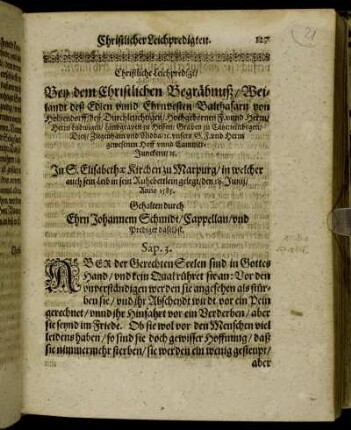 Christlicher Leichpredigten.
127
21
Christliche Leichpredigt/
Bey dem Christlichen Begräbnuß/ Wei-
landt deß Edlen vnnd Ehrnvesten Balthasarn von
Hohendorff/ deß Durchleuchtigen/ Hochgebornen F. vnnd Herrn/
Herrn Ludwigen/ Landgraven zu Hessen/ Graven zu Catzenelnbogen/
Dietz/ Ziegenhain vnnd Nidda/ ꝛc. vnsers G. F. vnd Herrn
gewesenen Hoff vnnd Cammer-
Junckern/ ꝛc.
In S. Elisabethæ Kirchen zu Marpurg/ in welcher
auch sein Leib in sein Ruhebettlein gelegt/ den Junij/
Anno
Gehalten durch
Ehrn Johannem Schmidt/ Cappellan/ vnd
Prediger daselbst.
Sap. 3.
ABER der Gerechten Seelen sind in Gottes
Hand/ vnd kein Qual rühret sie an: Vor den
vnverständigen werden sie angesehen als stür-
ben sie/ vnd ihr Abscheydt wirdt vor ein Pein
gerechnet/ vnnd ihr Hinfahrt vor ein Verderben/ aber
sie seynd im Friede. Ob sie wol vor den Menschen viel
leidens haben/ so sind sie doch gewisser Hoffnung/ daß
sie nimmermehr sterben/ sie werden ein wenig gesteupt/
aber